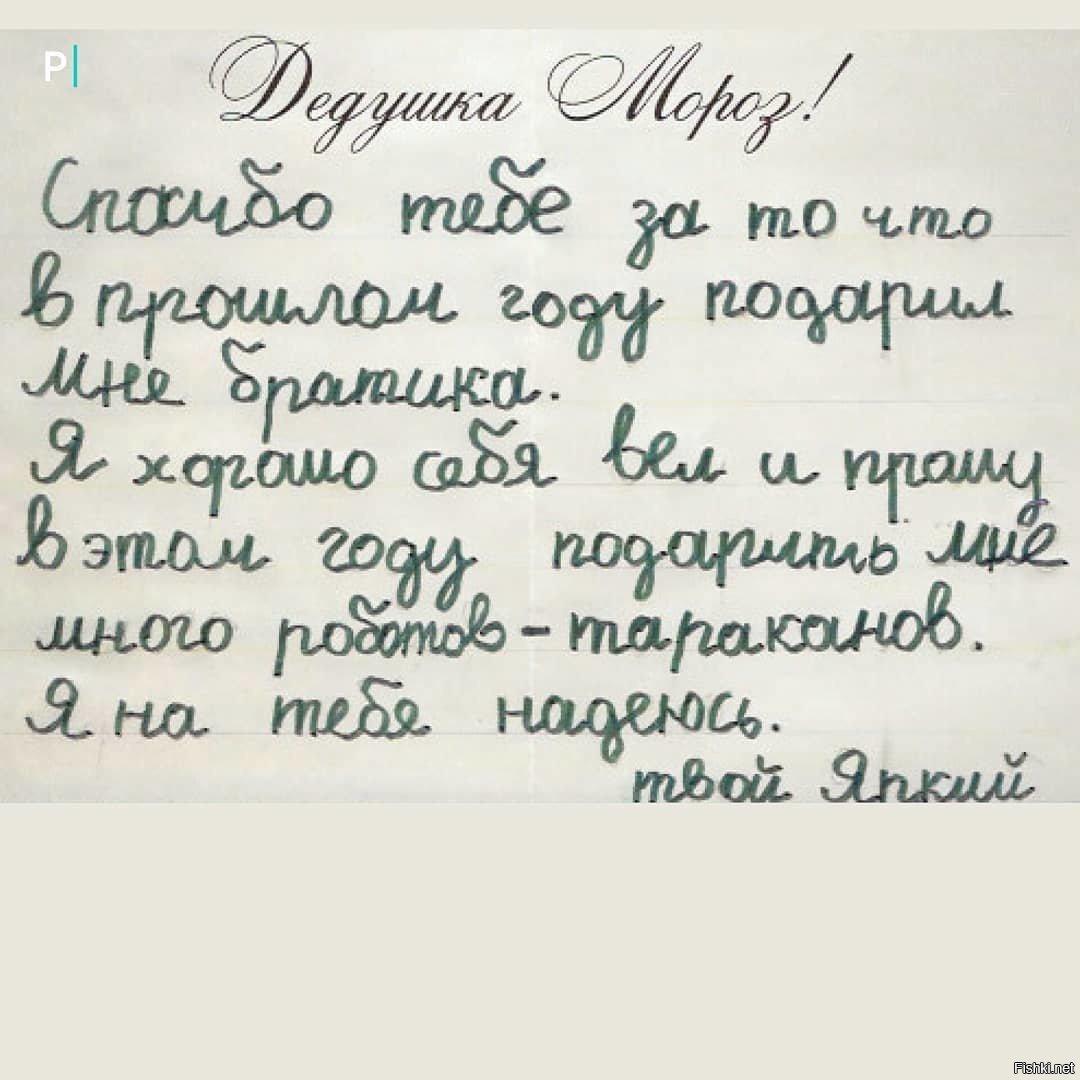 P
Дедушка Мороз!
Спасибо тебе за то что
в прошлом году подарил
мне братика.
Я хорошо себя вел и прошу
в этом году подарить мне
много роботов-тараканов.
Я на тебя надеюсь.
твой
Fishki.net